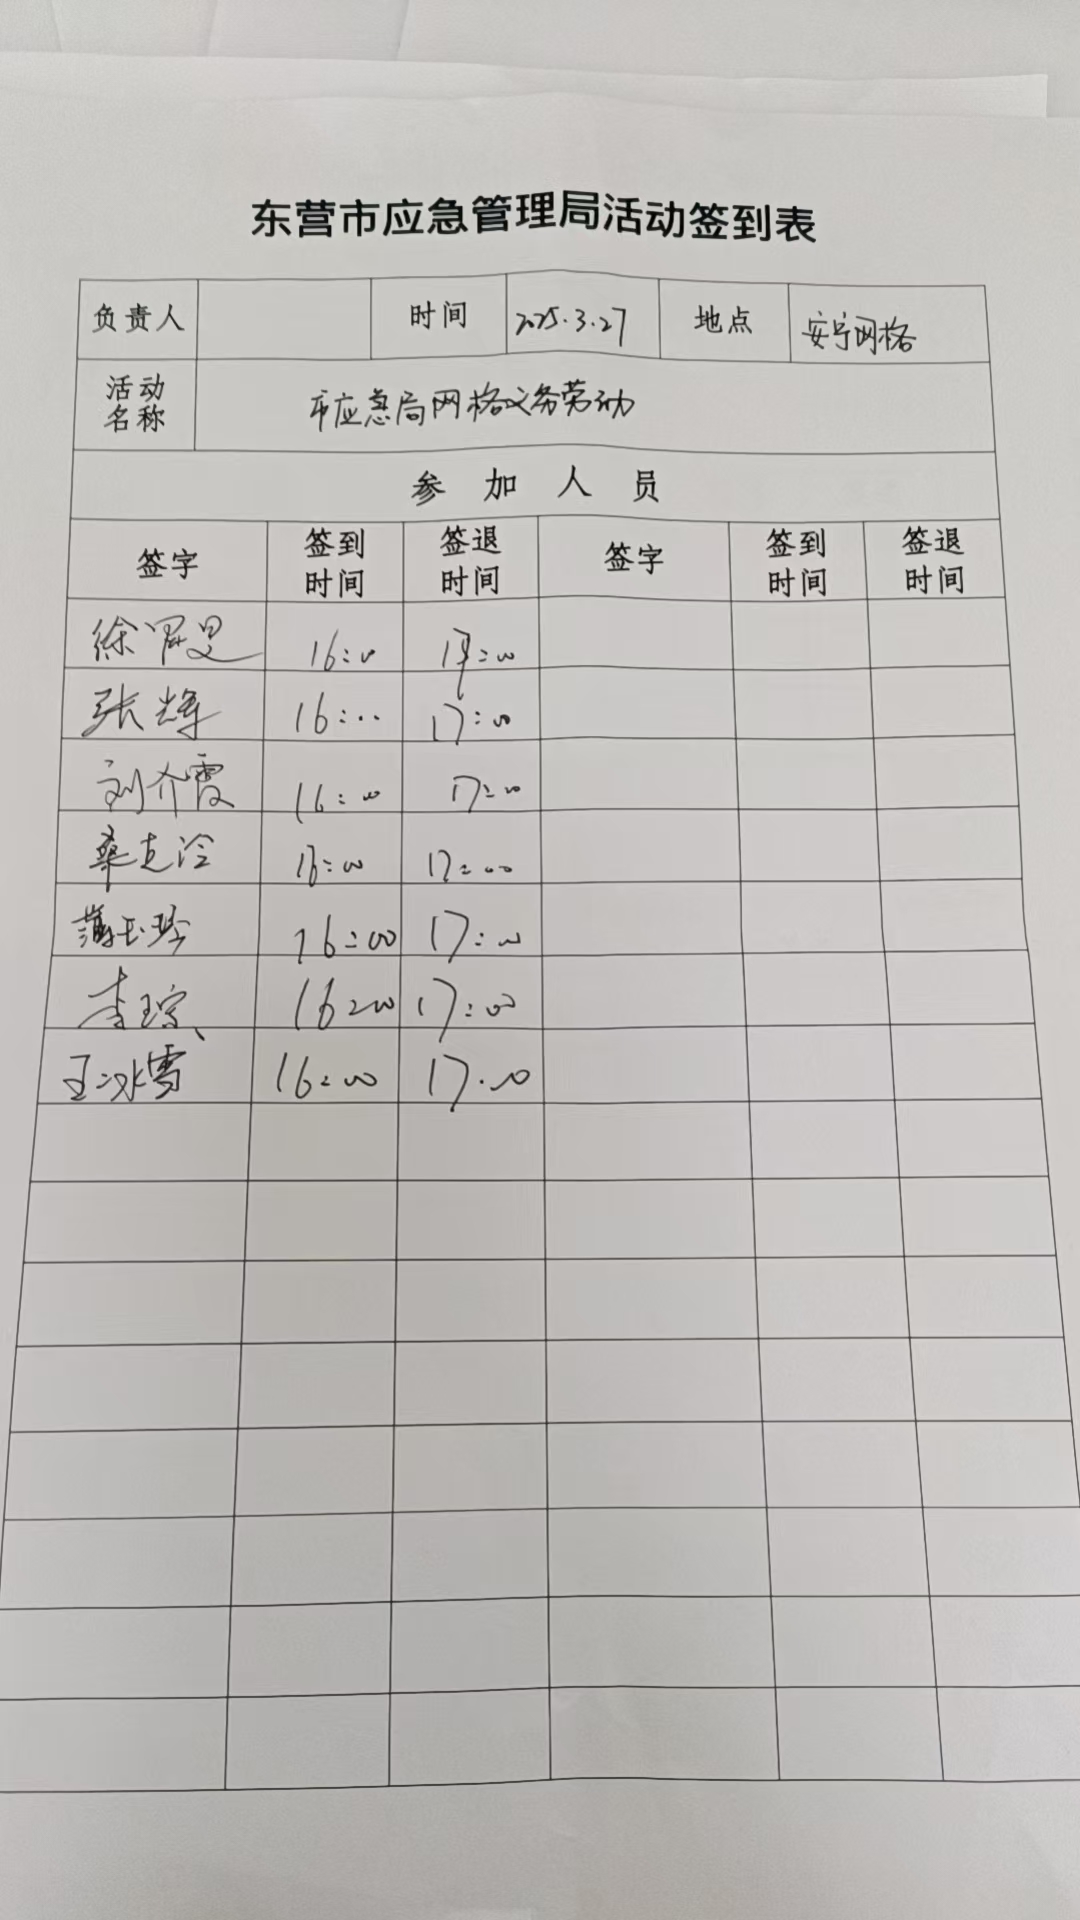 东营市应急管理局活动签到表
负责人 时间 2025.3.27 地点 安宁网格
活动名称 市应急局网格义务劳动
参加人员
签字 签到时间 签退时间 签字 签到时间 签退时间
徐 16:00 17:00
张辉 16:00 17:00
刘介霞 16:00 17:00
桑克冷 16:00 17:00
蒲玉珍 16:00 17:00
李琮 16:00 17:00
王冰雪 16:00 17:00